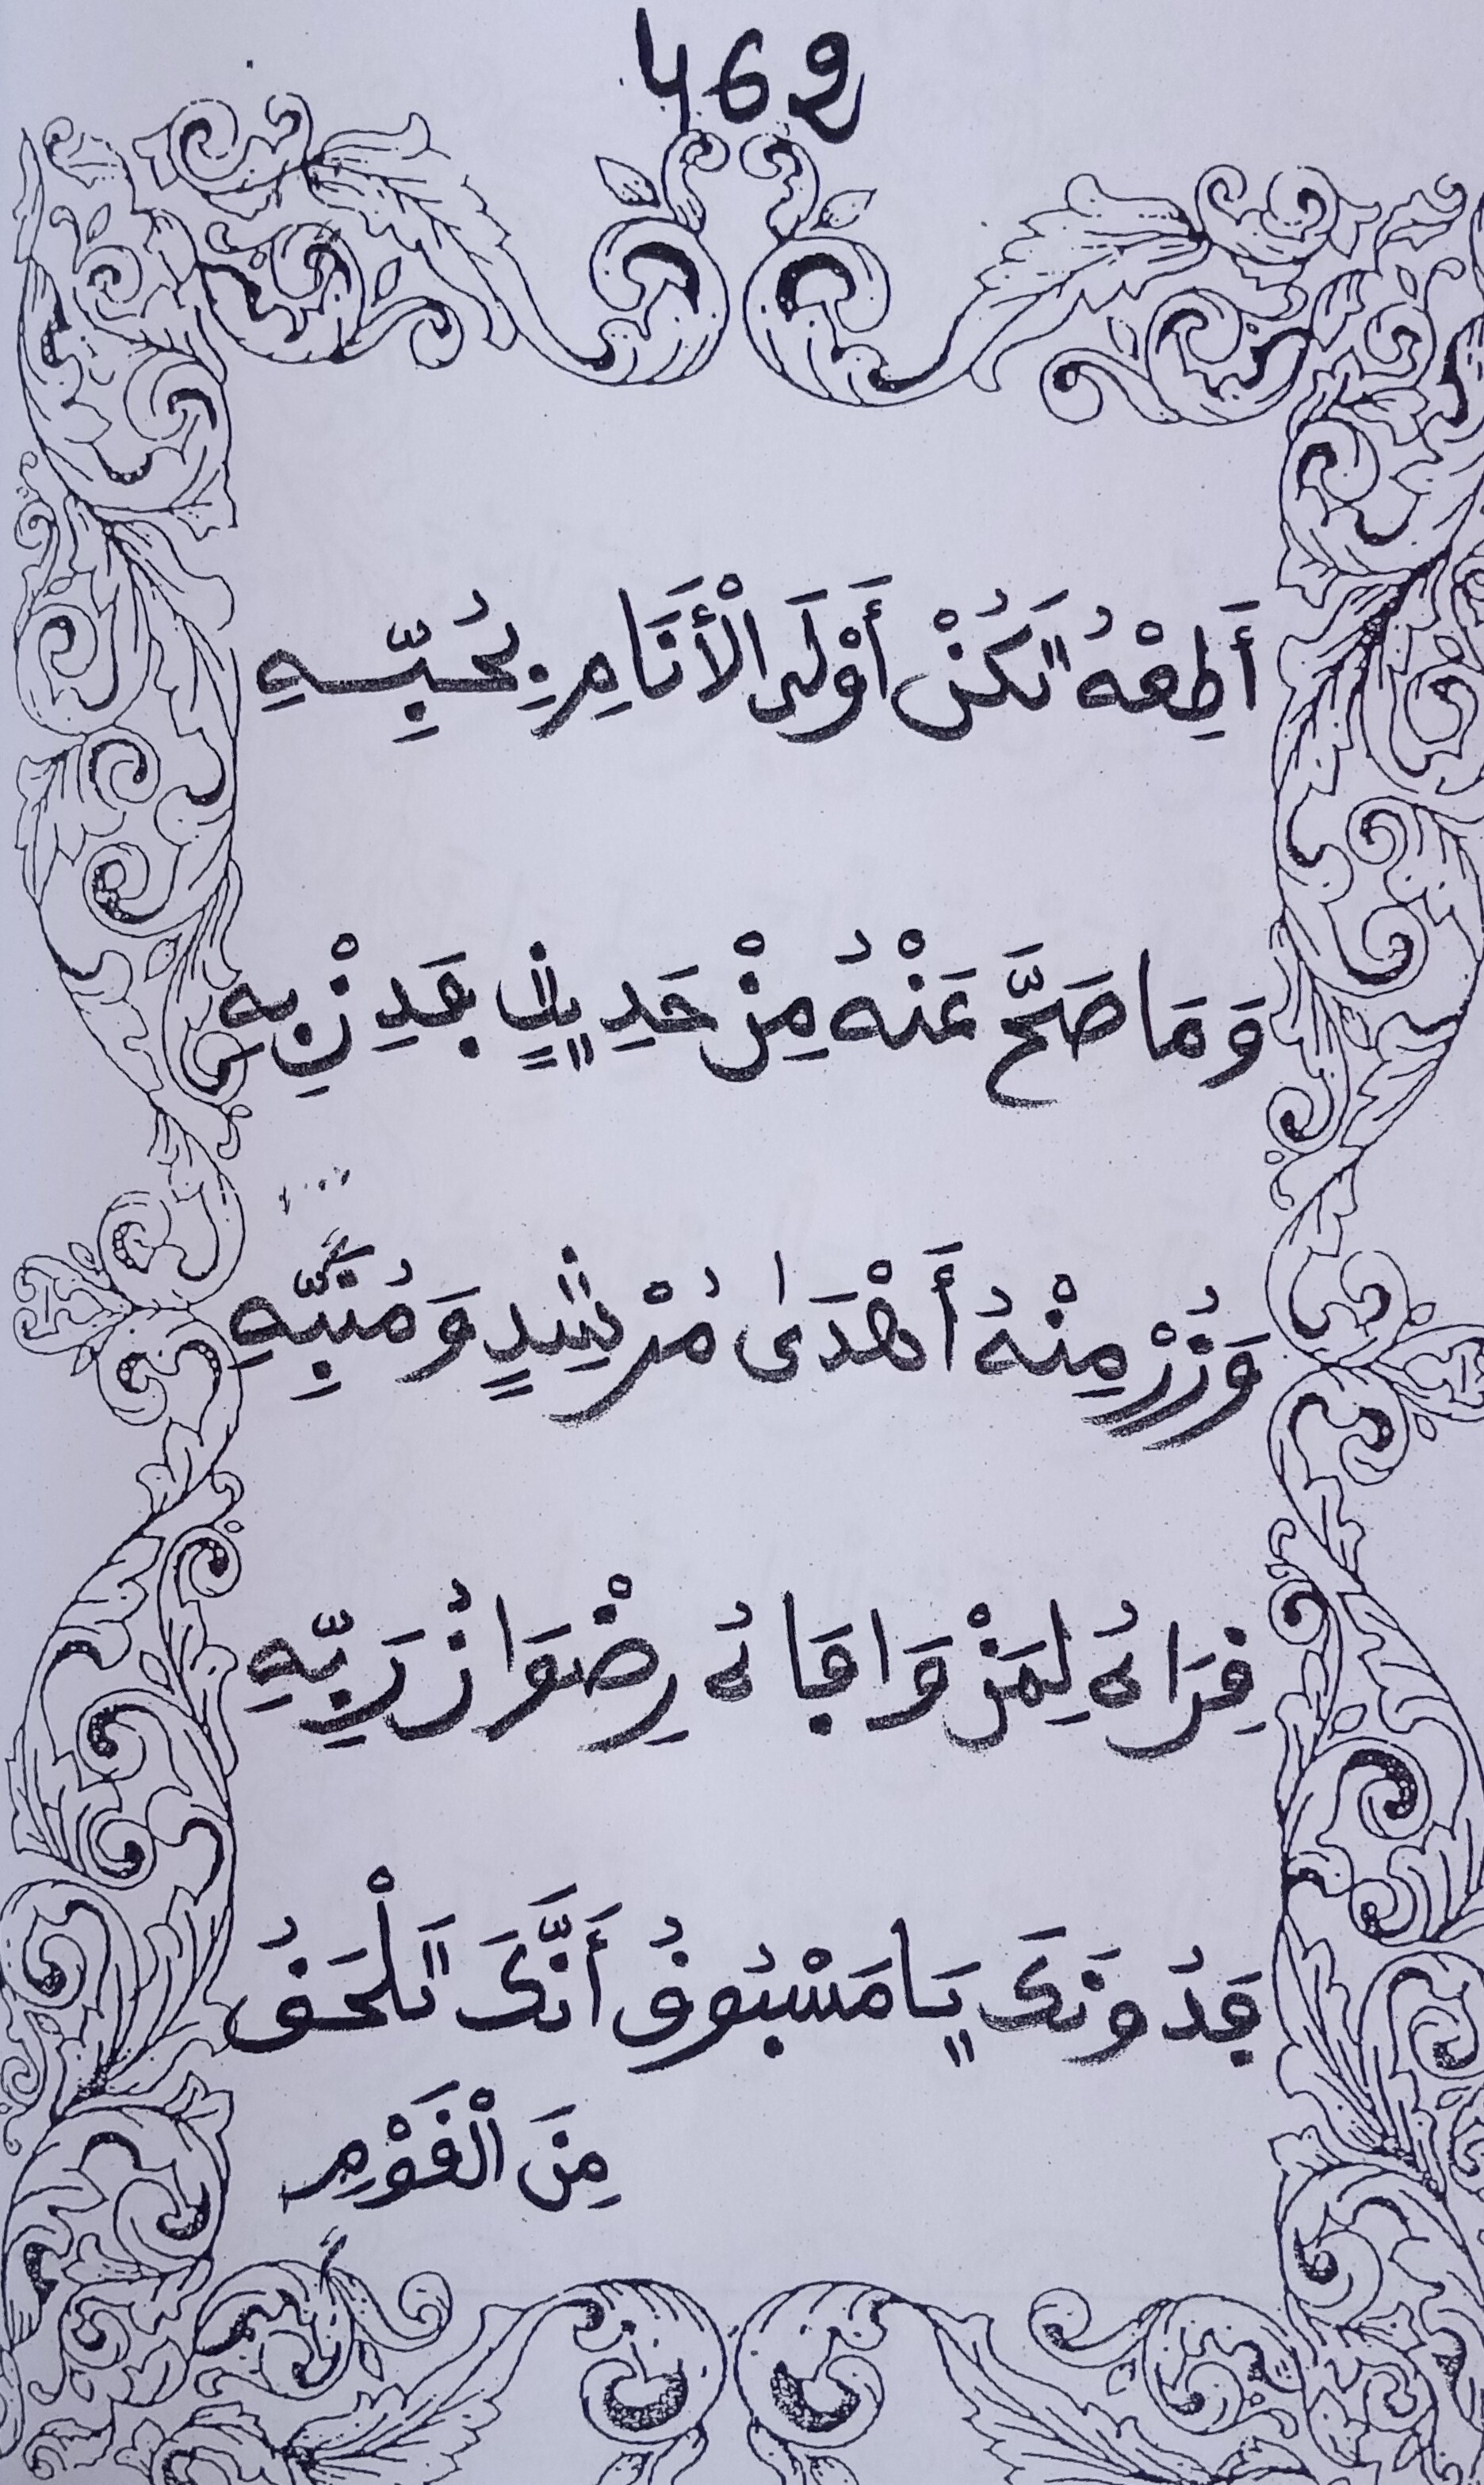 462
أَطِعْهُ تَكُنْ أَوْلَى الْأَنَامِ بِحُبِّهِ
وَمَا صَحَّ عَنْهُ مِنْ حَدِيثٍ فَدِنْ بِهِ
وَزُرْ مِنْهُ أَهْدَىٰ مُرْشِدٍ وَمُنَبِّهِ
قِرَاهُ لِمَنْ وَافَاهُ رِضْوَانُ رَبِّهِ
فَدُونَكَ يَا مَسْبُوقُ أَنَّكَ تَلْحَقُ
مِنَ الْقَوْمِ